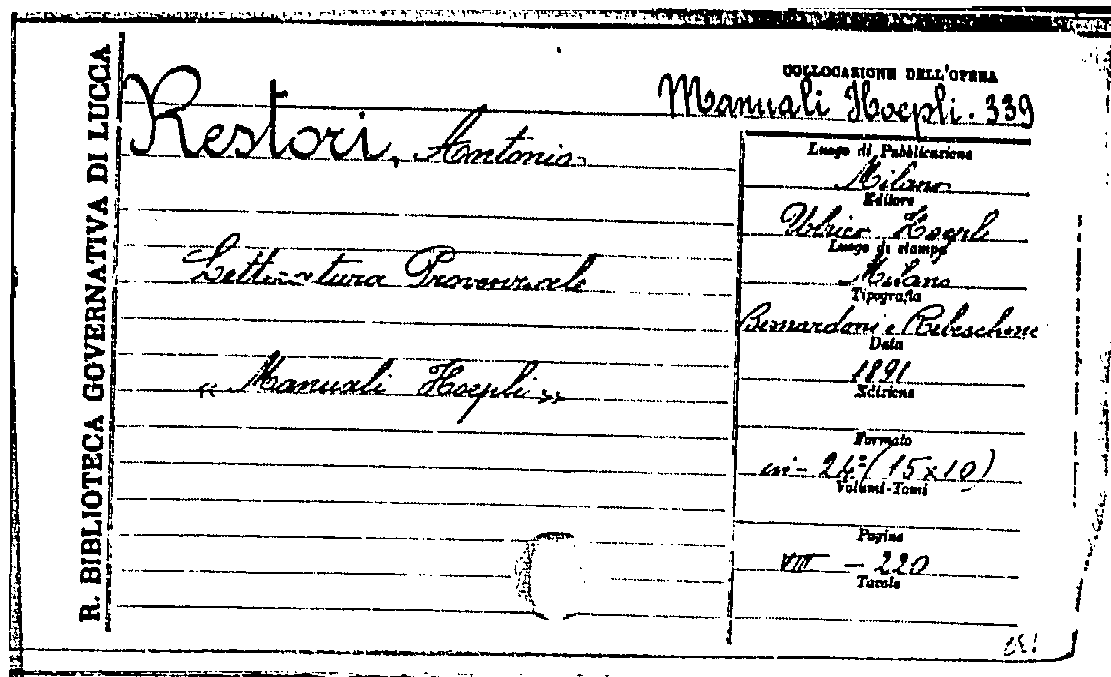 R. BIBLIOTECA GOVERNATIVA DI LUCCA
COLLOCAZIONE DELL'OPERA
Manuali Hoepli. 339
Restori, Antonio
Letteratura Provenzale
« Manuali Hoepli »
Luogo di Pubblicazione
Milano
Editore
Ulrico Hoepli
Luogo di stampa
Milano
Tipografia
Bernardoni e Rebeschini
Data
1891
Edizione
Formato
in-24º (15x10)
Volumi-Tomi
Pagine
VIII - 220
Tavole